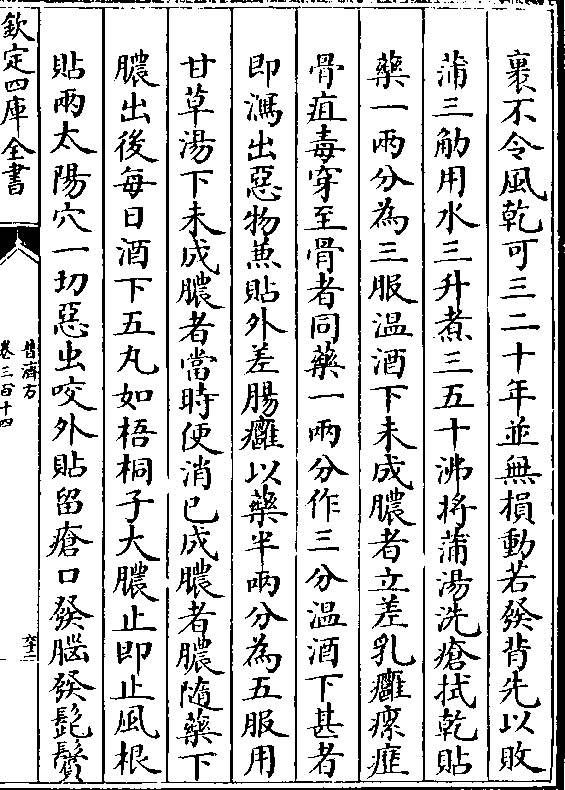 裹不令風乾可三二十年並無損動若發背先以敗
蒲三觔用水三升煮三五十沸將蒲湯洗瘡拭乾貼
藥一兩分為三服温酒下未成膿者立差乳癰瘰癧
骨疽毒穿至骨者同藥一兩分作三分温酒下甚者
即瀉出惡物兼貼外差腸癰以藥半兩分為五服用
甘草湯下未成膿者當時便消已成膿者膿隨藥下
膿出後每日酒下五丸如梧桐子大膿止即止風根
貼兩太陽穴一切惡虫咬外貼留瘡口發腦發髭鬢
欽定四庫全書
普濟方
卷三百十四